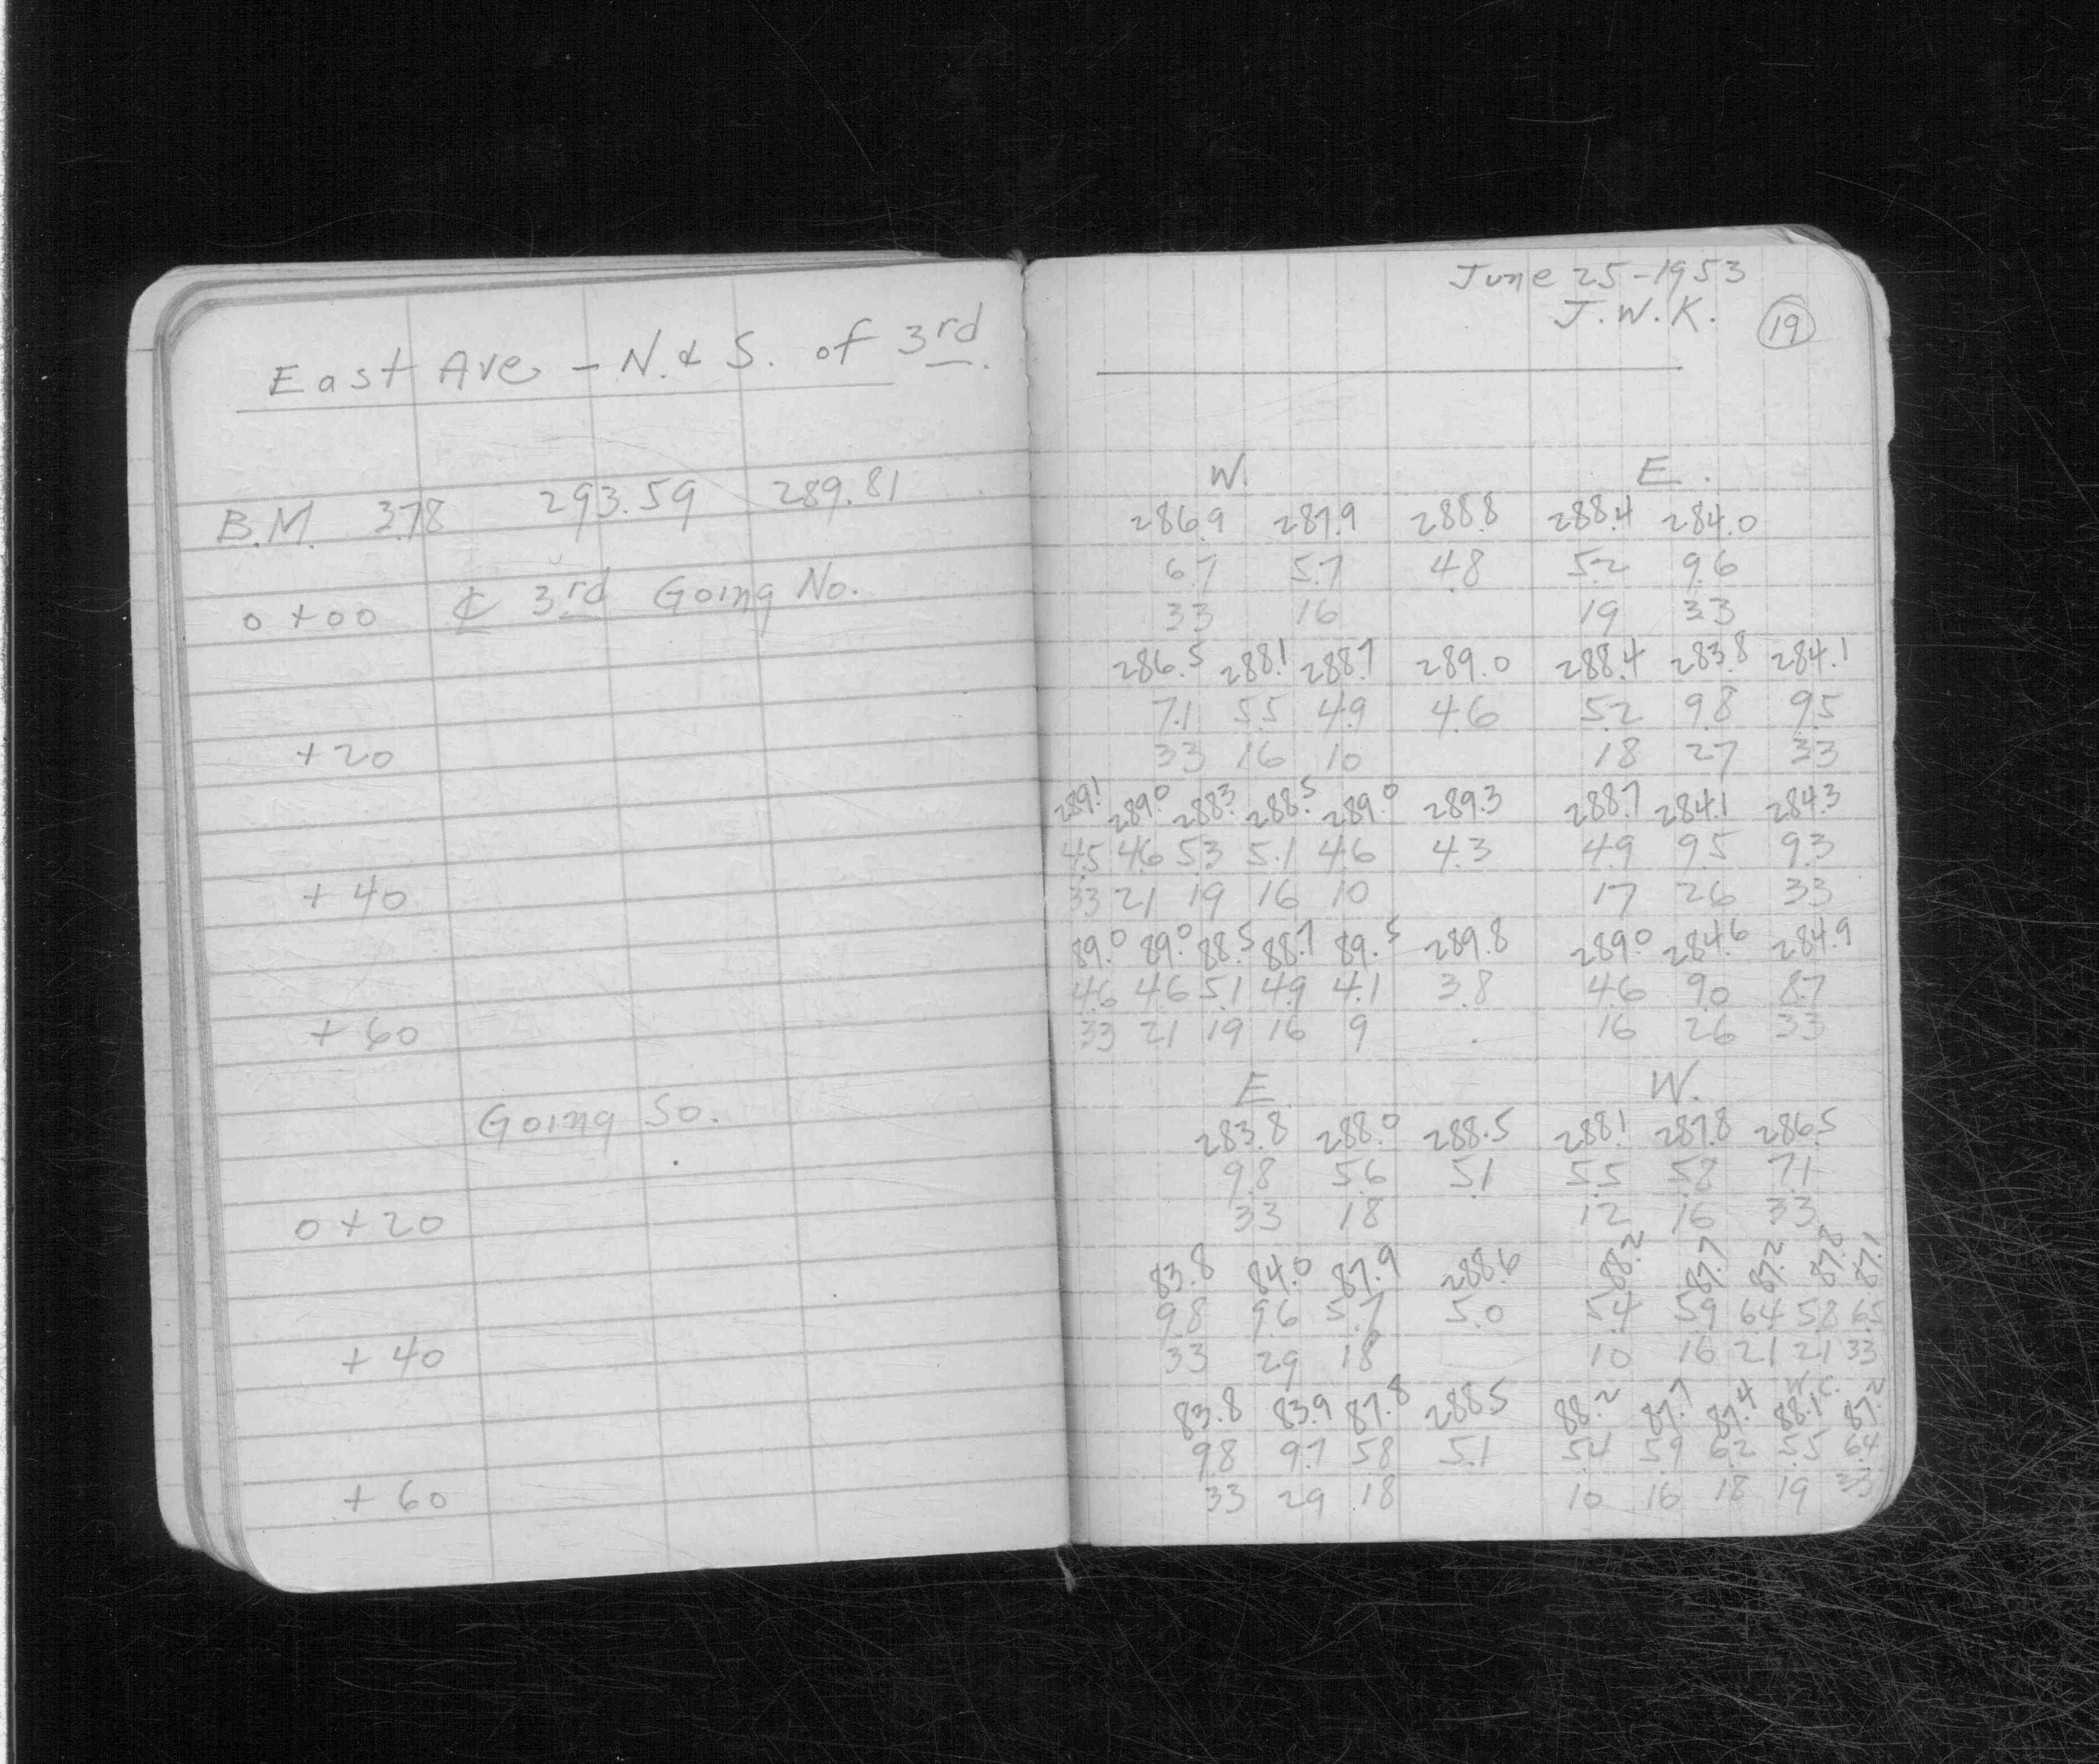 East Ave – N. & S. of 3rd.
B.M. 3.78 293.59 289.81
0+00 ℄ 3rd Going No.
+20
+40
+60
Going So.
0+20
+40
+60
June 25-1953
J.W.K. 19
W. E.
286.9 287.9 288.8 288.4 284.0
6.7 5.7 4.8 5.2 9.6
33 16 19 33
286.5 288.1 288.7 289.0 288.4 283.8 284.1
7.1 5.5 4.9 4.6 5.2 9.8 9.5
33 16 10 18 27 33
289.1 289.0 288.3 288.5 289.0 289.3 288.7 284.1 284.3
4.5 4.6 5.3 5.1 4.6 4.3 4.9 9.5 9.3
33 21 19 16 10 17 26 33
89.0 89.0 88.5 88.7 89.5 289.8 289.0 284.6 284.9
4.6 4.6 5.1 4.9 4.1 3.8 4.6 9.0 8.7
33 21 19 16 9 16 26 33
E. W.
283.8 288.0 288.5 288.1 287.8 286.5
9.8 5.6 5.1 5.5 5.8 7.1
33 18 12 16 33
83.8 84.0 87.9 288.6 88.2 87.7 87.2 87.8 87.1
9.8 9.6 5.7 5.0 5.4 5.9 6.4 5.8 6.5
33 29 18 10 16 21 21 33
83.8 83.9 87.8 288.5 88.2 87.7 87.4 88.1 87.2
9.8 9.7 5.8 5.1 5.4 5.9 6.2 5.5 6.4
33 29 18 10 16 18 19 33